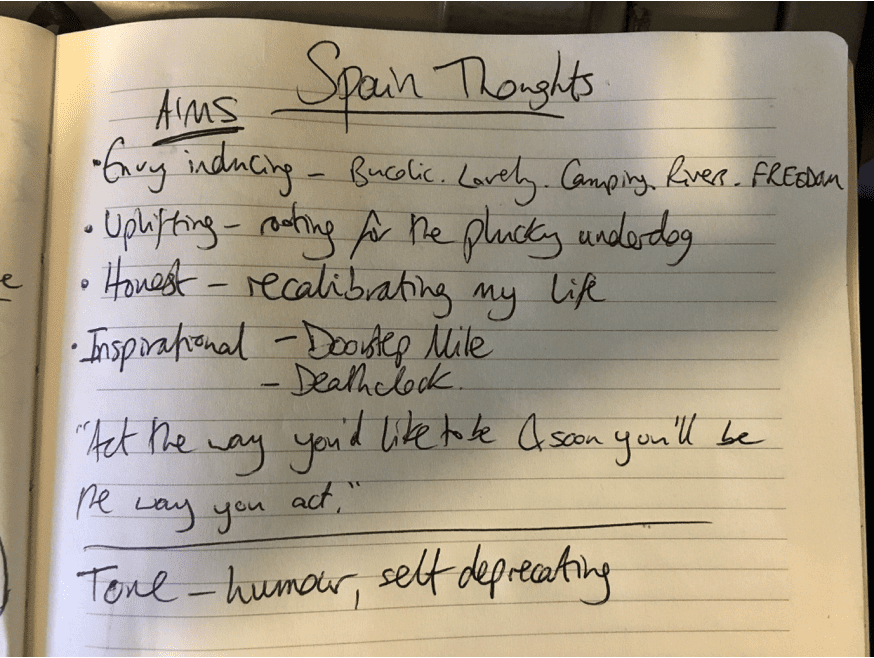 Spain Thoughts
AIMS
• Envy inducing – Bucolic. Lovely. Camping. Rivers. FREEDOM
• Uplifting – rooting for the plucky underdog
• Honest – recalibrating my life
• Inspirational – Doorstep Mile
– Deathclock.
"Act the way you'd like to be & soon you'll be
the way you act."
Tone – humour, self deprecating
e